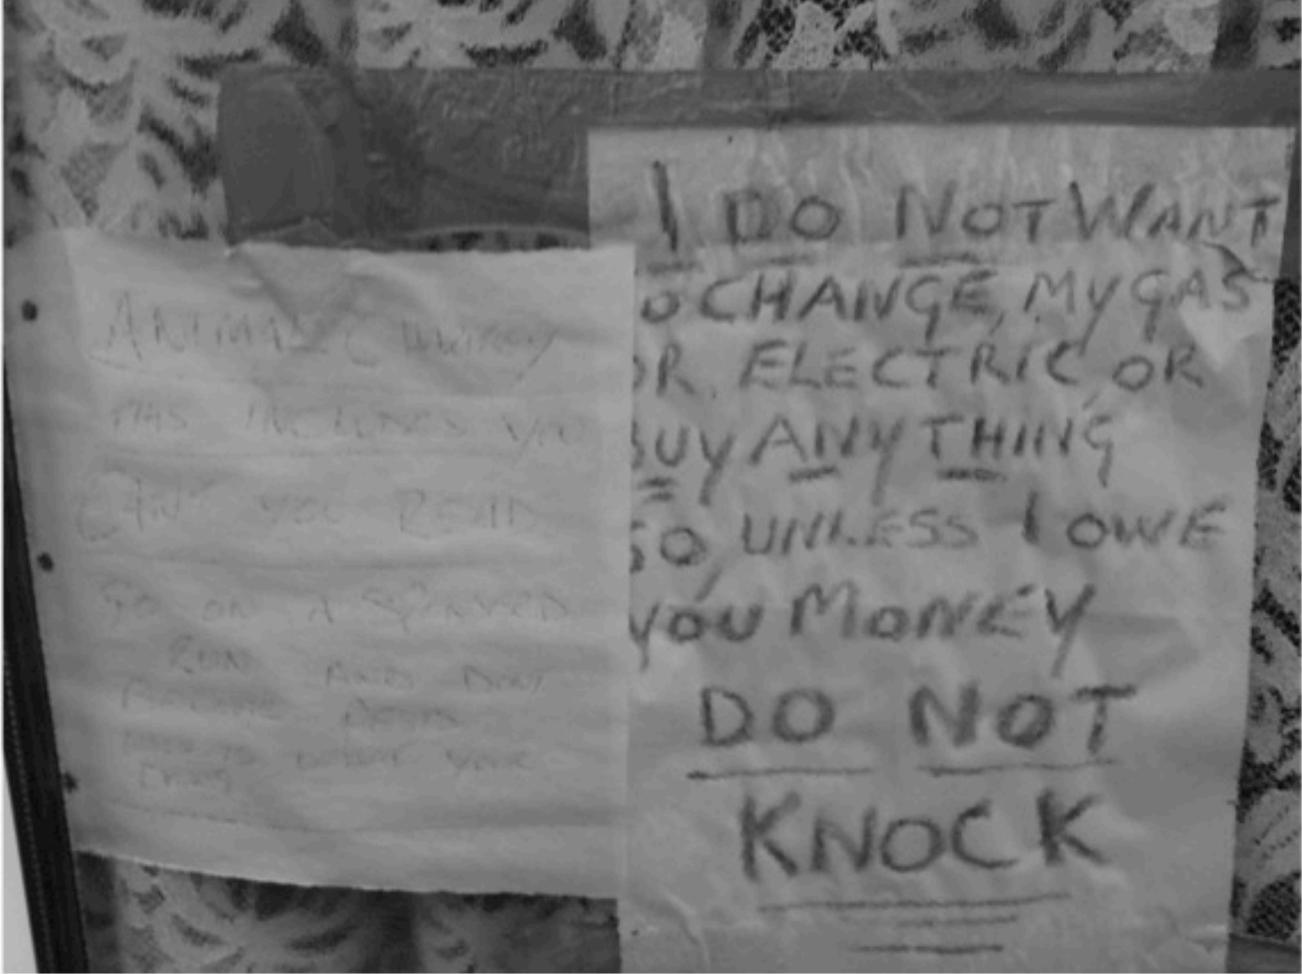 ANIMAL CHARITY
THIS INCLUDES YOU
CAN'T YOU READ
GO ON A SPONSORED
RUN AND DON'T
YOUR
I DO NOT WANT
TO CHANGE, MY GAS
OR, ELECTRIC, OR
BUY ANYTHING
SO, UNLESS I OWE
YOU MONEY
DO NOT
KNOCK